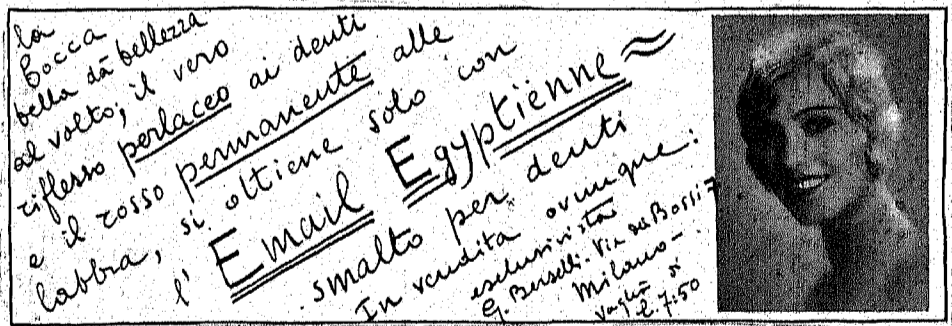 la
bocca
bella dà bellezza
al volto; il vero
riflesso perlaceo ai denti
e il rosso permanente alle
labbra, si ottiene solo con
l'Email Egyptienne
smalto per denti
In vendita ovunque:
esclusivista
G. Berselli. Via dei Bossi 7
Milano -
vaglia di
L. 7:50